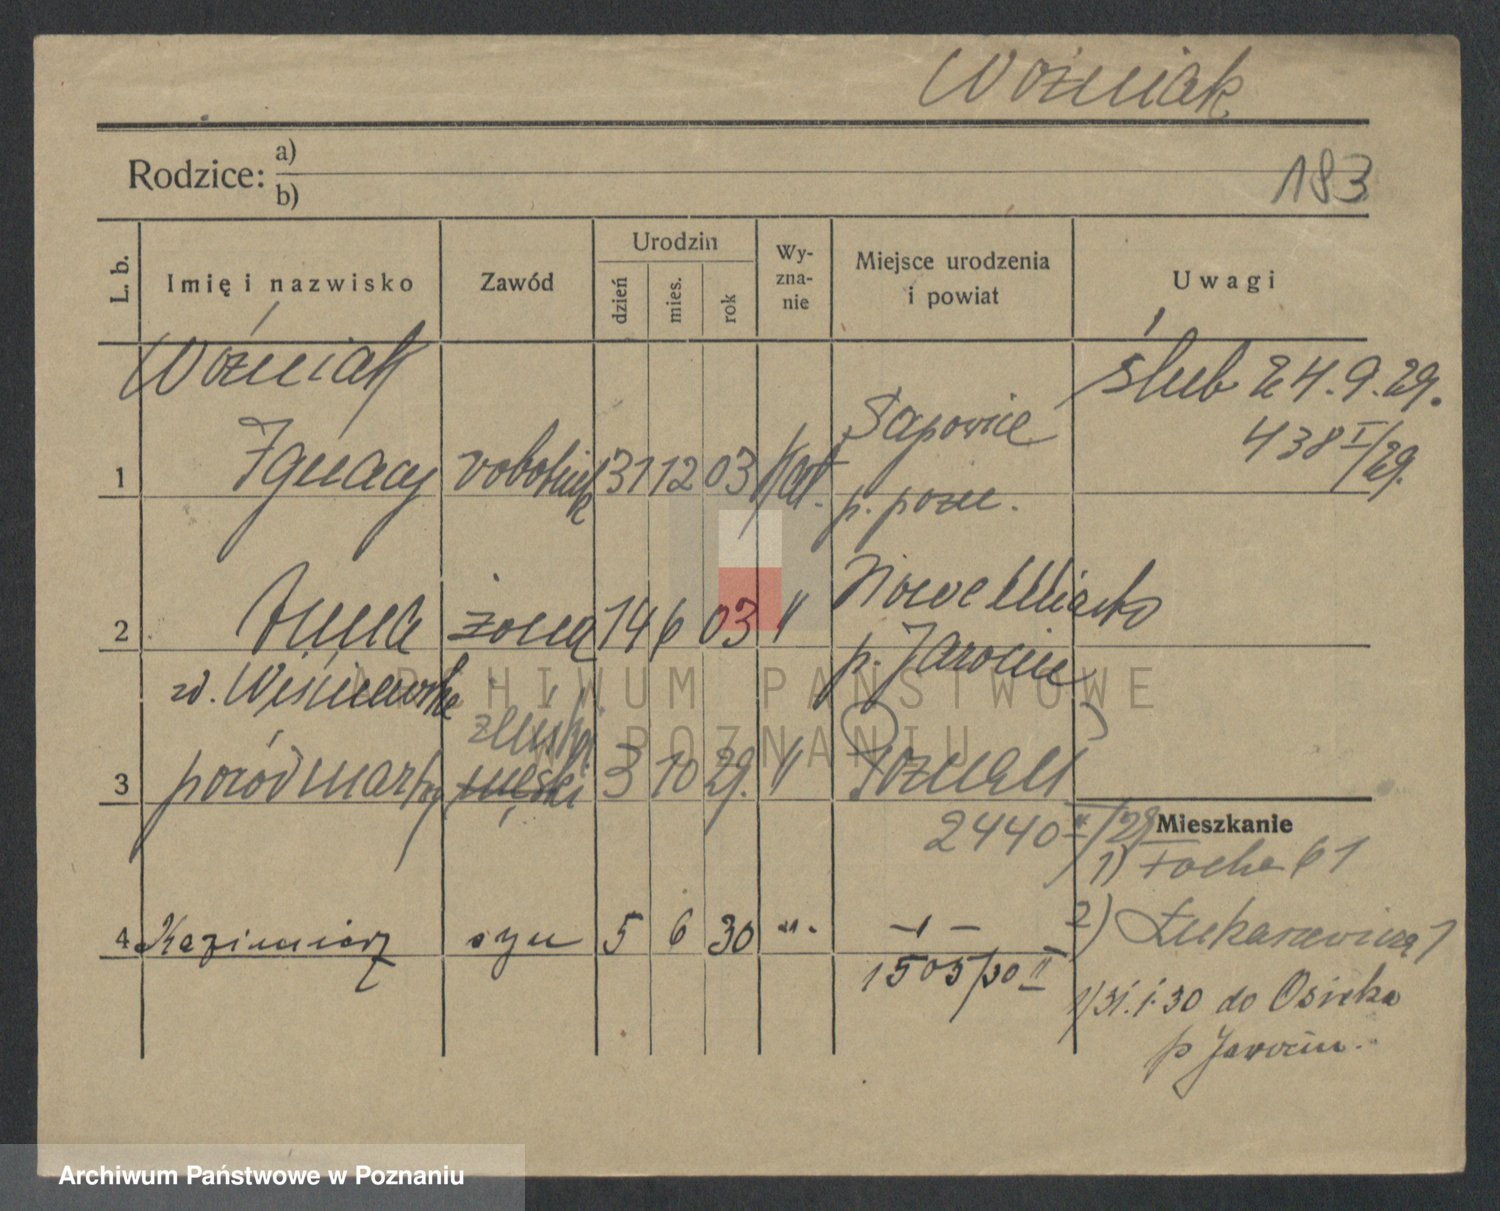 Woźniak
183
Rodzice: a)
b)
L. b. Imię i nazwisko Zawód Urodzin dzień mies. rok Wy-zna-nie Miejsce urodzenia i powiat Uwagi
Woźniak ślub 24.9.29.
1 Ignacy robotnik 31 12 03 kat. Sapowice 438 I/29.
p. pozn.
2 Anna żona 14 6 03 " Nowe Miasto
zd. Wiśniewska p. Jarocin
żeński
3 poród martwy męski 3 10 29. " Poznań
2440 /29 Mieszkanie
1) Focha 61
4 Kazimierz syn 5 6 30 -"- - " - 2) Łukaszewicza 7
1505/30 II 1/31.1.30 do Osieka
p Jarocin.
ARCHIWUM PAŃSTWOWE
W POZNANIU
Archiwum Państwowe w Poznaniu